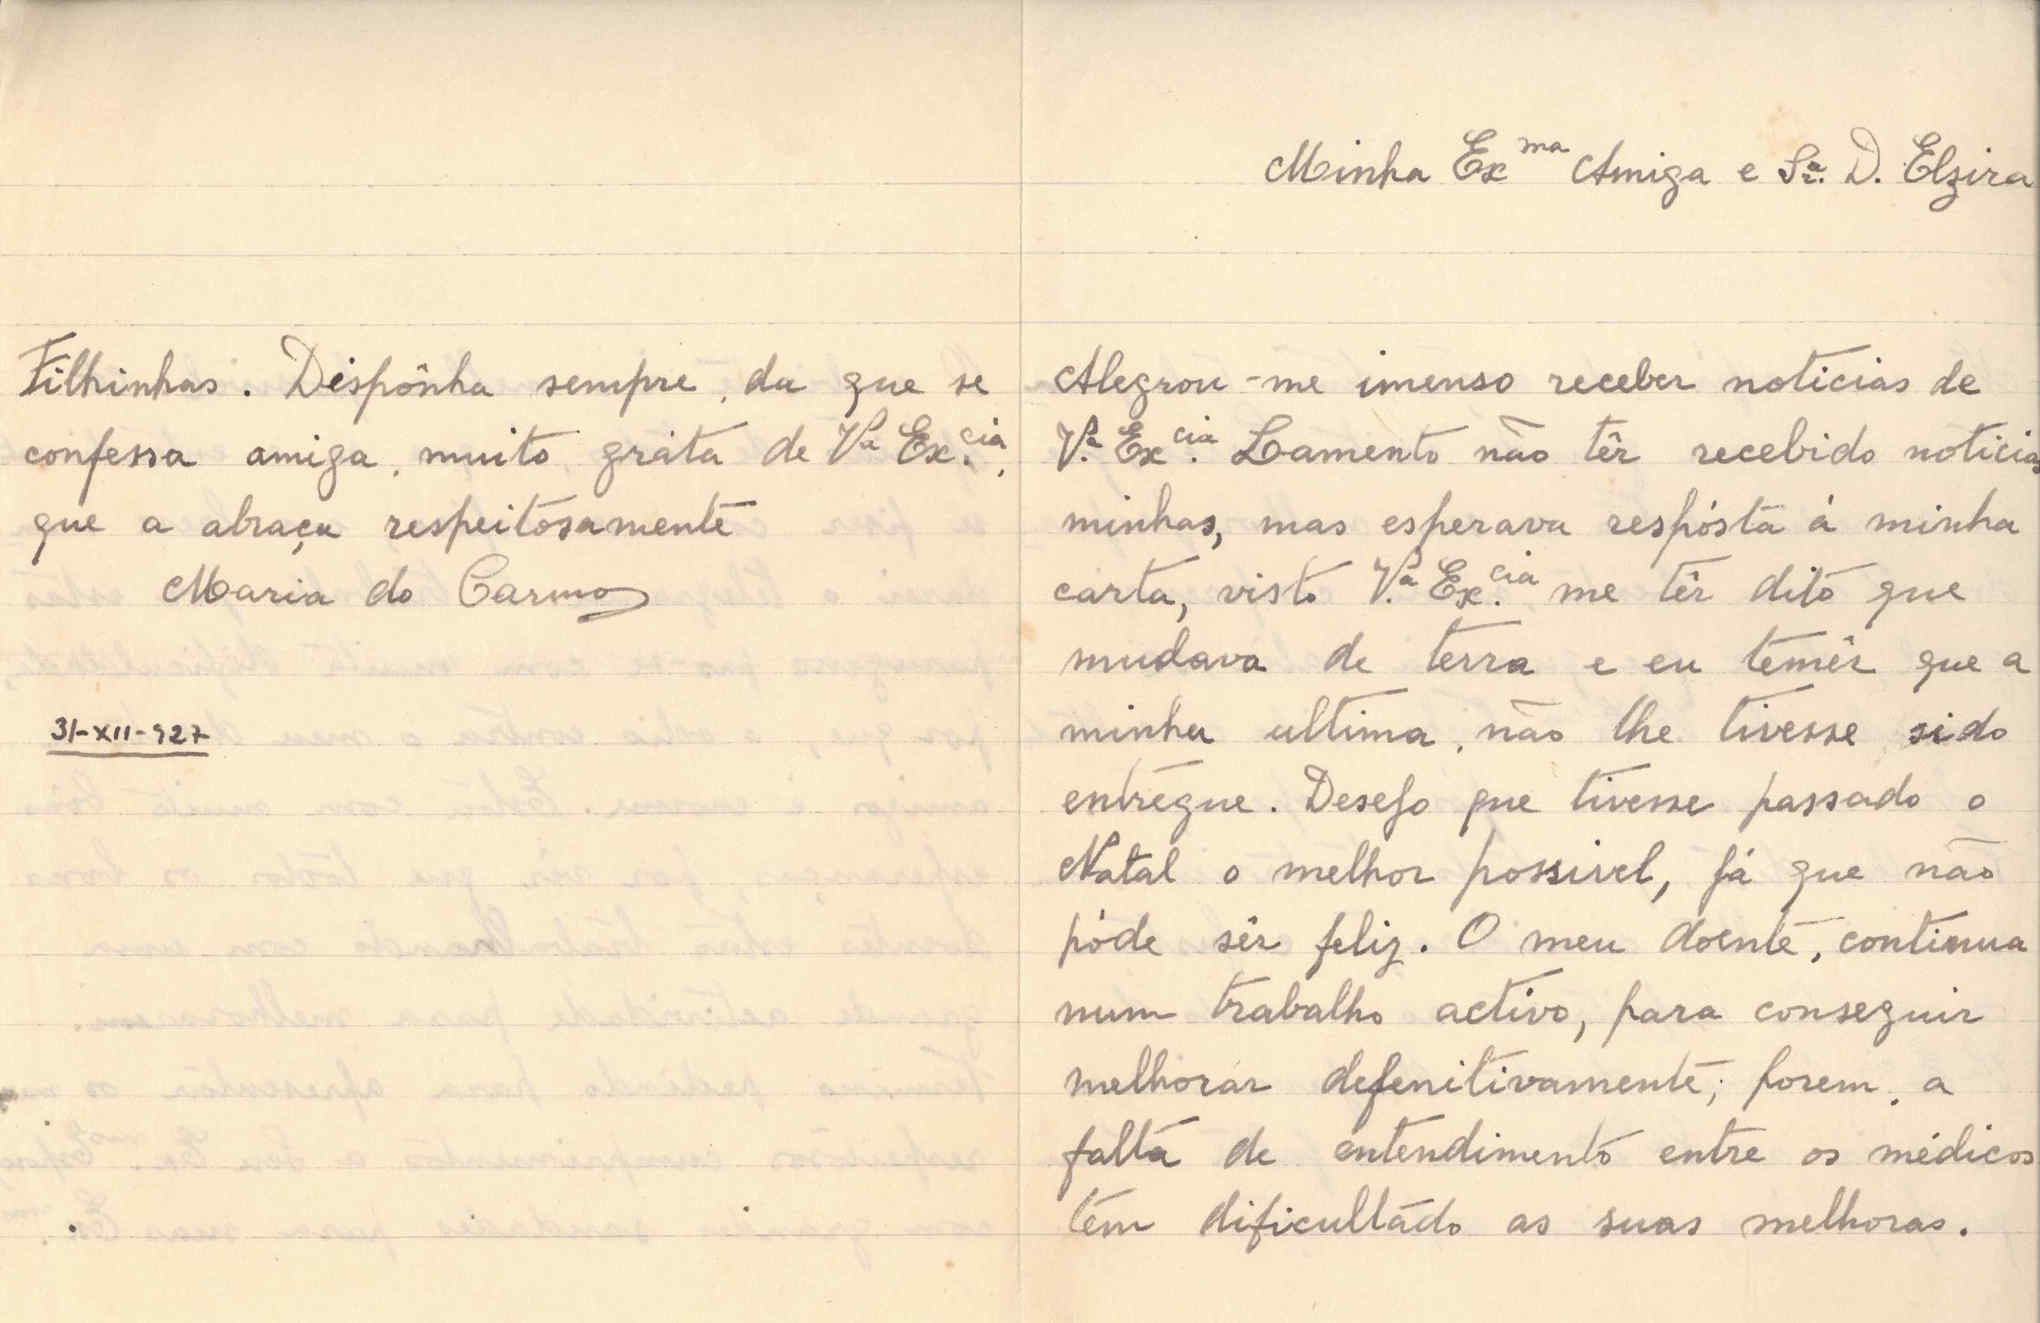 Minha Ex.ma Amiga e Sr.a D. Elzira
Alegrou-me imenso receber noticias de
V.a Ex.cia. Lamento não têr recebido noticias
minhas, mas esperava respósta á minha
carta, visto V.a Ex.cia me têr dito que
mudava de terra e eu temêr que a
minha ultima, não lhe tivesse sido
entregue. Desejo que tivesse passado o
Natal o melhor possivel, já que não
póde sêr feliz. O meu doente, continua
num trabalho activo, para conseguir
melhorar defenitivamente; porem, a
falta de entendimento entre os médicos
têm dificultado as suas melhoras.
Filhinhas. Dispônha sempre, da que se
confessa amiga, muito gráta de V.a Ex.cia,
que a abraça respeitosamente
Maria do Carmo
31-XII-927